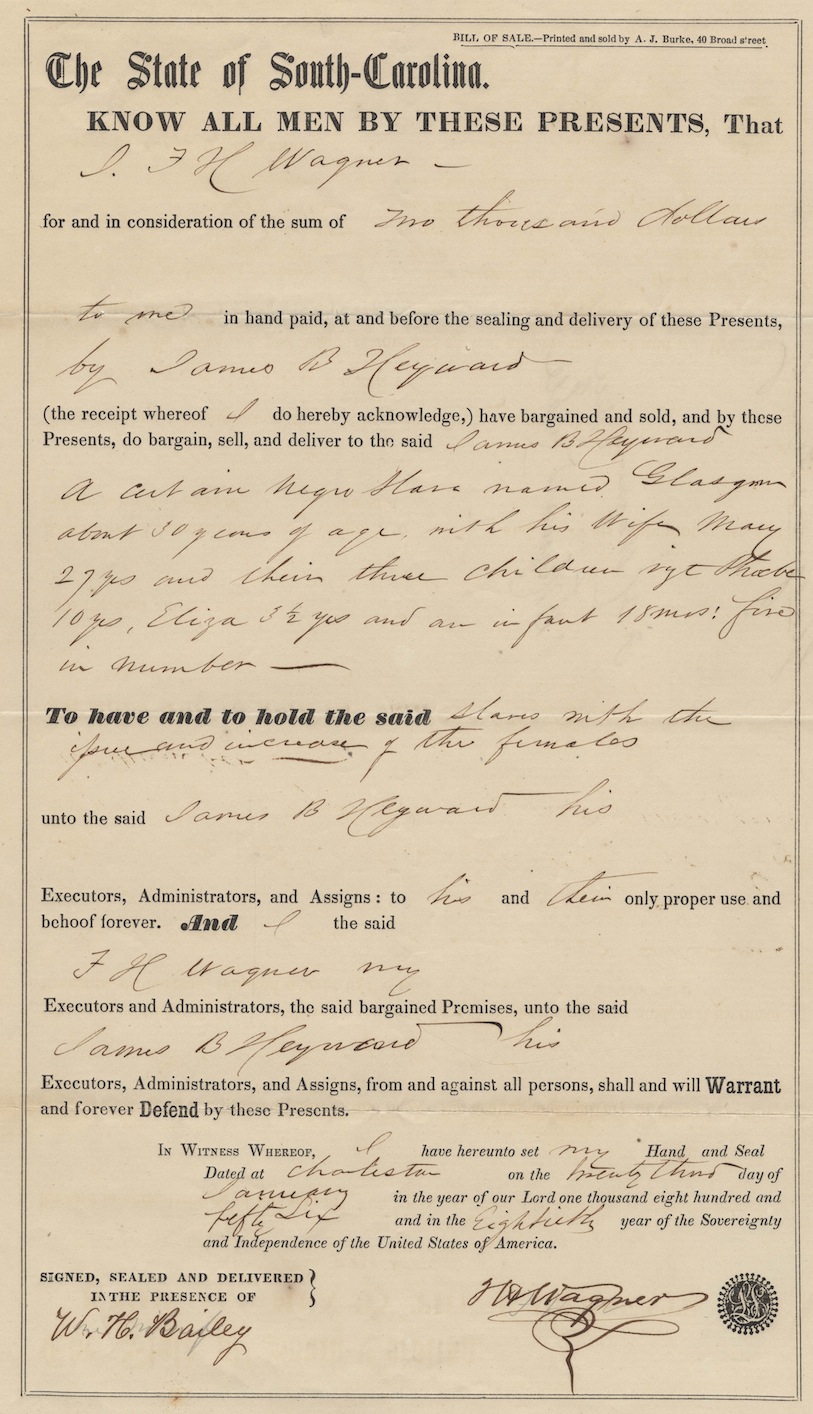 BILL OF SALE.—Printed and sold by A. J. Burke, 40 Broad street
The State of South-Carolina.
KNOW ALL MEN BY THESE PRESENTS, That
I. F H Wagner —
for and in consideration of the sum of Two thousand dollars
to me in hand paid, at and before the sealing and delivery of these Presents,
by James B Heyward
(the receipt whereof I do hereby acknowledge,) have bargained and sold, and by these
Presents, do bargain, sell, and deliver to the said James B Heyward
A certain Negro Slave named Glasgow
about 30 years of age, with his Wife Mary
27 yrs and their three children viz Phoebe
10 yrs, Eliza 3½ yrs and an infant 18 mos: five
in number —
To have and to hold the said slaves with the
issue and increase of the females
unto the said James B Heyward his
Executors, Administrators, and Assigns: to his and their only proper use and
behoof forever. And I the said
F H Wagner my
Executors and Administrators, the said bargained Premises, unto the said
James B Heyward his
Executors, Administrators, and Assigns, from and against all persons, shall and will Warrant
and forever Defend by these Presents.
IN WITNESS WHEREOF, I have hereunto set my Hand and Seal
Dated at Charleston on the twenty third day of
January in the year of our Lord one thousand eight hundred and
fifty Six and in the Eightieth year of the Sovereignty
and Independence of the United States of America.
SIGNED, SEALED AND DELIVERED
IN THE PRESENCE OF
W. H. Bailey
FHWagner